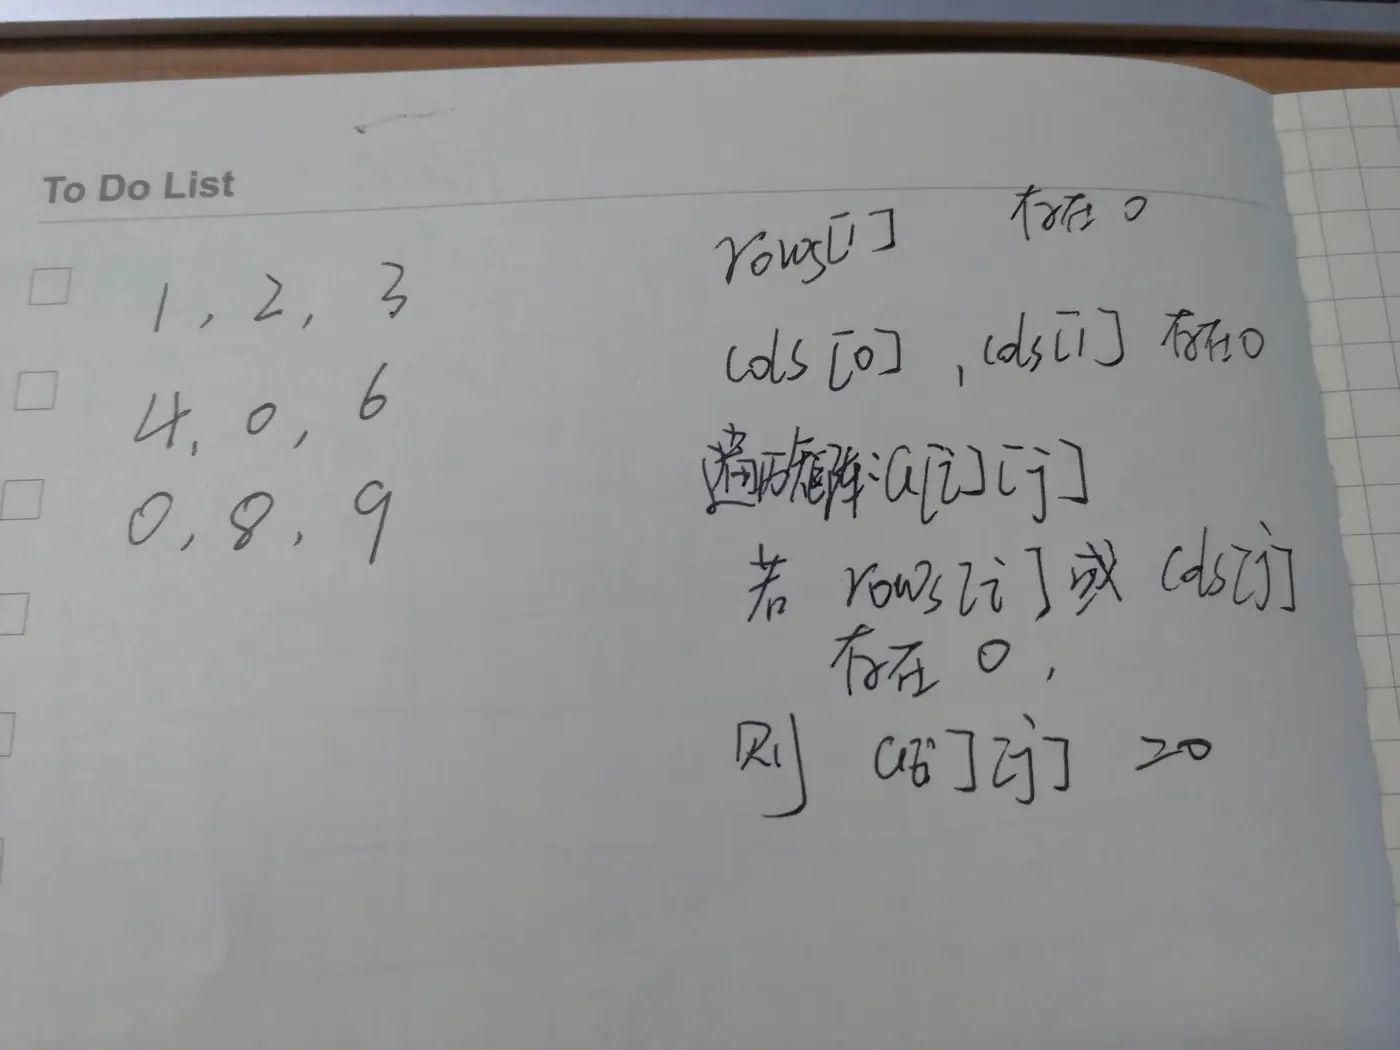 To Do List
1, 2, 3
4, 0, 6
0, 8, 9
rows[1] 存在0
cols[0], cols[1] 存在0
遍历矩阵:a[i][j]
若 rows[i] 或 cols[j]
存在 0,
则 a[i][j] =0